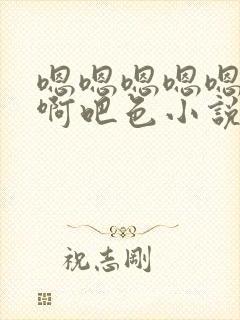 嗯嗯嗯嗯嗯
啊吧色小説
祝志剛